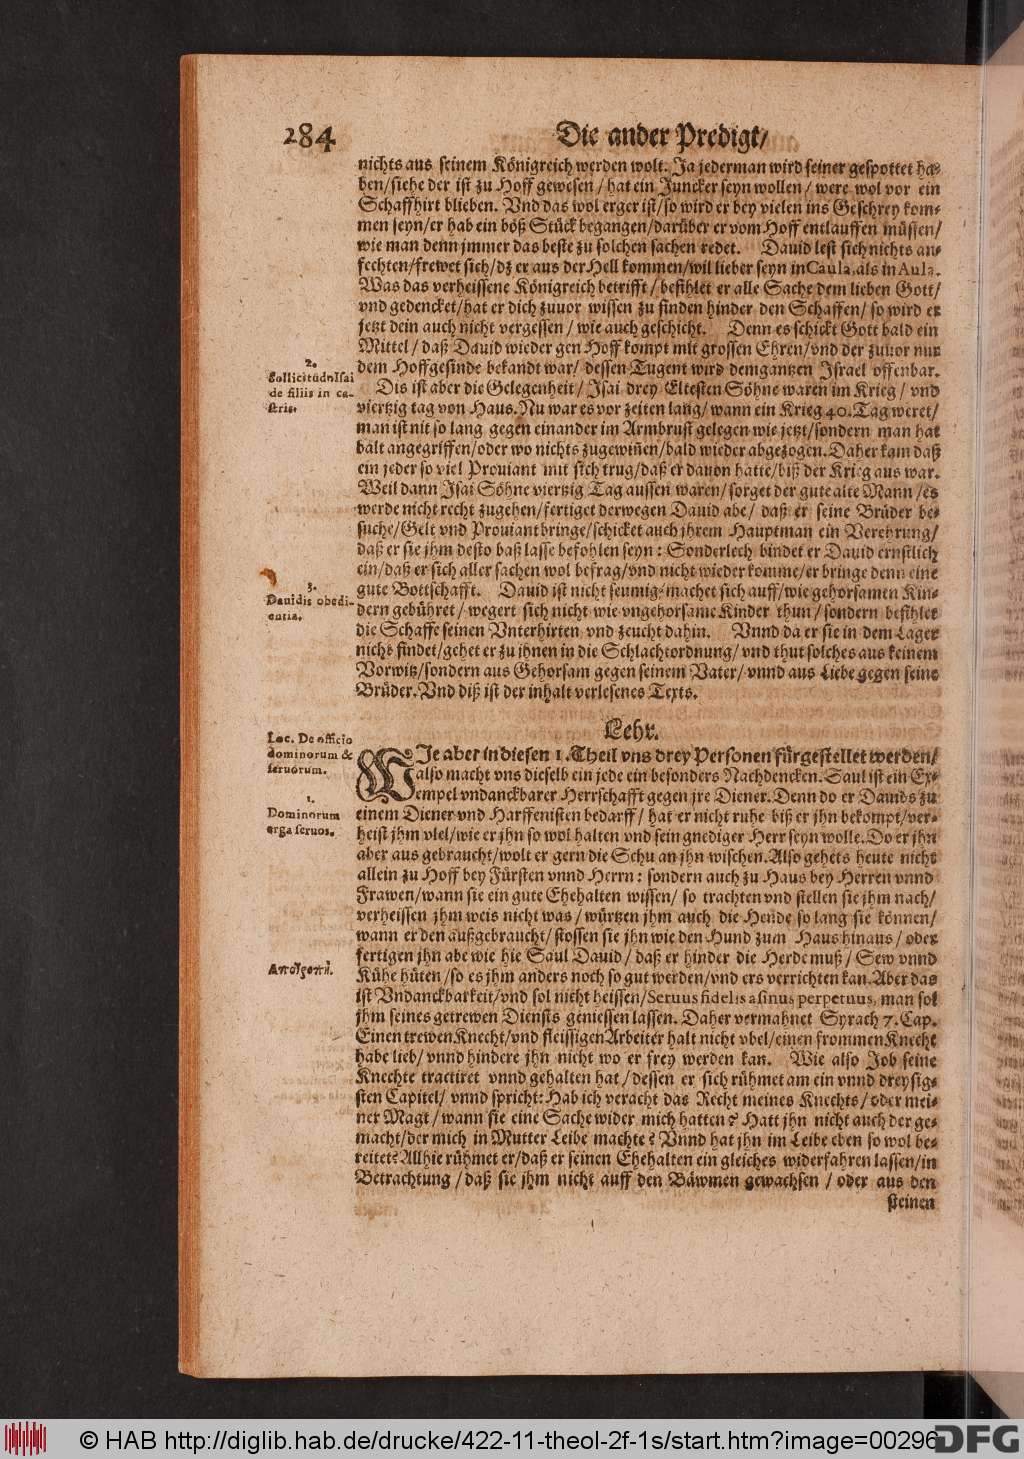 284
Die ander Predigt/
nichts aus seinem Königreich werden wolt. Ja jederman wird seiner gespottet ha-
ben/siehe der ist zu Hoff gewesen / hat ein Juncker seyn wollen / were wol vor ein
Schaffhirt blieben. Vnd das wol erger ist/so wird er bey vielen ins Geschrey kom-
men seyn/er hab ein böß Stück begangen/darüber er vom Hoff entlauffen müssen/
wie man denn jmmer das beste zu solchen sachen redet. Dauid lest sich nichts an-
fechten/frewet sich/dz er aus der Hell kommen/wil lieber seyn in Caula, als in Aula.
Was das verheissene Königreich betrifft / befihlet er alle Sache dem lieben Gott/
vnd gedencket/hat er dich zuuor wissen zu finden hinder den Schaffen/ so wird er
jetzt dein auch nicht vergessen / wie auch geschicht. Denn es schickt Gott bald ein
Mittel / daß Dauid wieder gen Hoff kompt mit grossen Ehren/vnd der zuuor nur
dem Hoffgesinde bekandt war/ dessen Tugent wird dem gantzen Israel offenbar.
2.
Sollicitudo Isai
de filiis in ca-
stris.
Dis ist aber die Gelegenheit / Isai drey Eltesten Söhne waren im Krieg / vnd
viertzig tag von Haus. Nu war es vor zeiten lang/ wann ein Krieg 40. Tag weret/
man ist nit so lang gegen einander im Armbrust gelegen wie jetzt/sondern man hat
balt angegriffen/oder wo nichts zugewiñen/bald wieder abgezogen. Daher kam daß
ein jeder so viel Prouiant mit sich trug/daß er dauon hatte/biß der Krieg aus war.
Weil dann Isai Söhne viertzig Tag aussen waren/sorget der gute alte Mann /es
werde nicht recht zugehen/fertiget derwegen Dauid abe/ daß er seine Brüder be-
suche/Gelt vnd Prouiant bringe/schicket auch jhrem Hauptman ein Verehrung/
daß er sie jhm desto baß lasse befohlen seyn: Sonderlech bindet er Dauid ernstlich
ein/daß er sich aller sachen wol befrag/vnd nicht wieder komme/er bringe denn eine
gute Bottschafft. Dauid ist nicht seumig/machet sich auff/wie gehorsamen Kin-
dern gebühret/ wegert sich nicht wie vngehorsame Kinder thun/ sondern befihlet
die Schaffe seinen Vnterhirten vnd zeucht dahin. Vnnd da er sie in dem Lager
nicht findet/gehet er zu jhnen in die Schlachtordnung/ vnd thut solches aus keinem
Vorwitz/sondern aus Gehorsam gegen seinem Vater/ vnnd aus Liebe gegen seine
Brüder. Vnd diß ist der inhalt verlesenes Texts.
3.
Dauidis obedi-
entia.
Lehr.
Loc. De officio
dominorum &
seruorum.
1.
Dominorum
erga seruos.
WIe aber in diesen 1. Theil vns drey Personen fürgestellet werden/
also macht vns dieselb ein jede ein besonders Nachdencken. Saul ist ein Ex-
empel vndanckbarer Herrschafft gegen jre Diener. Denn do er Dauids zu
einem Diener vnd Harffenisten bedarff / hat er nicht ruhe biß er jhn bekompt/ver-
heist jhm viel/wie er jhn so wol halten vnd sein gnediger Herr seyn wolle. Do er jhn
aber aus gebraucht/wolt er gern die Schu an jhn wischen. Also gehets heute nicht
allein zu Hoff bey Fürsten vnnd Herrn: sondern auch zu Haus bey Herren vnnd
Frawen/wann sie ein gute Ehehalten wissen/ so trachten vnd stellen sie jhm nach/
verheissen jhm weis nicht was / würtzen jhm auch die Hende so lang sie können/
wann er den außgebraucht/ stossen sie jhn wie den Hund zum Haus hinaus / oder
fertigen jhn abe wie hie Saul Dauid / daß er hinder die Herde muß / Sew vnnd
Kühe hüten/so es jhm anders noch so gut werden/vnd ers verrichten kan. Aber das
ist Vndanckbarkeit/vnd sol nicht heissen/Seruus fidelis asinus perpetuus, man sol
jhm seines getrewen Diensts geniessen lassen. Daher vermahnet Syrach 7. Cap.
Einen trewen Knecht/vnd fleissigen Arbeiter halt nicht vbel/einen frommen Knecht
habe lieb/ vnnd hindere jhn nicht wo er frey werden kan. Wie also Job seine
Knechte tractiret vnnd gehalten hat / dessen er sich rühmet am ein vnnd dreysig-
sten Capitel/ vnnd spricht: Hab ich veracht das Recht meines Knechts / oder mei-
ner Magt / wann sie eine Sache wider mich hatten? Hatt jhn nicht auch der ge-
macht/der mich in Mutter Leibe machte? Vnnd hat jhn im Leibe eben so wol be-
reitet? Allhie rühmet er/daß er seinen Ehehalten ein gleiches widerfahren lassen/in
Betrachtung / daß sie jhm nicht auff den Bäwmen gewachsen / oder aus den
steinen
© HAB http://diglib.hab.de/drucke/422-11-theol-2f-1s/start.htm?image=00296
DFG